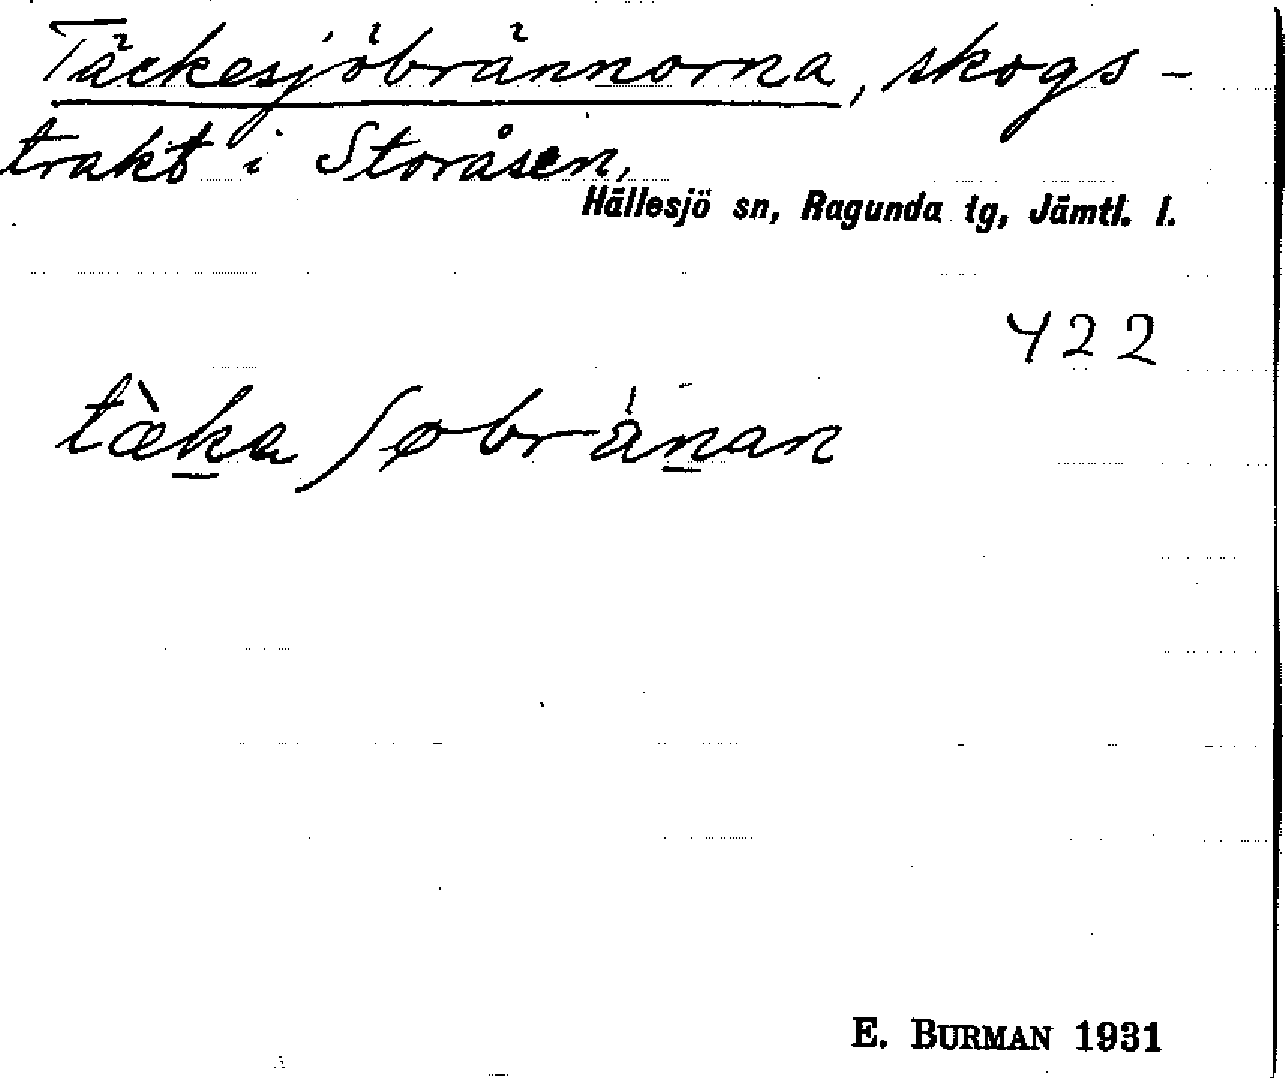 Täckesjöbrännorna, skogs-
trakt i Storåsen.
Hällesjö sn, Ragunda tg, Jämtl. l.
422
tæ̀ka ʃøbränan
E. BURMAN 1931